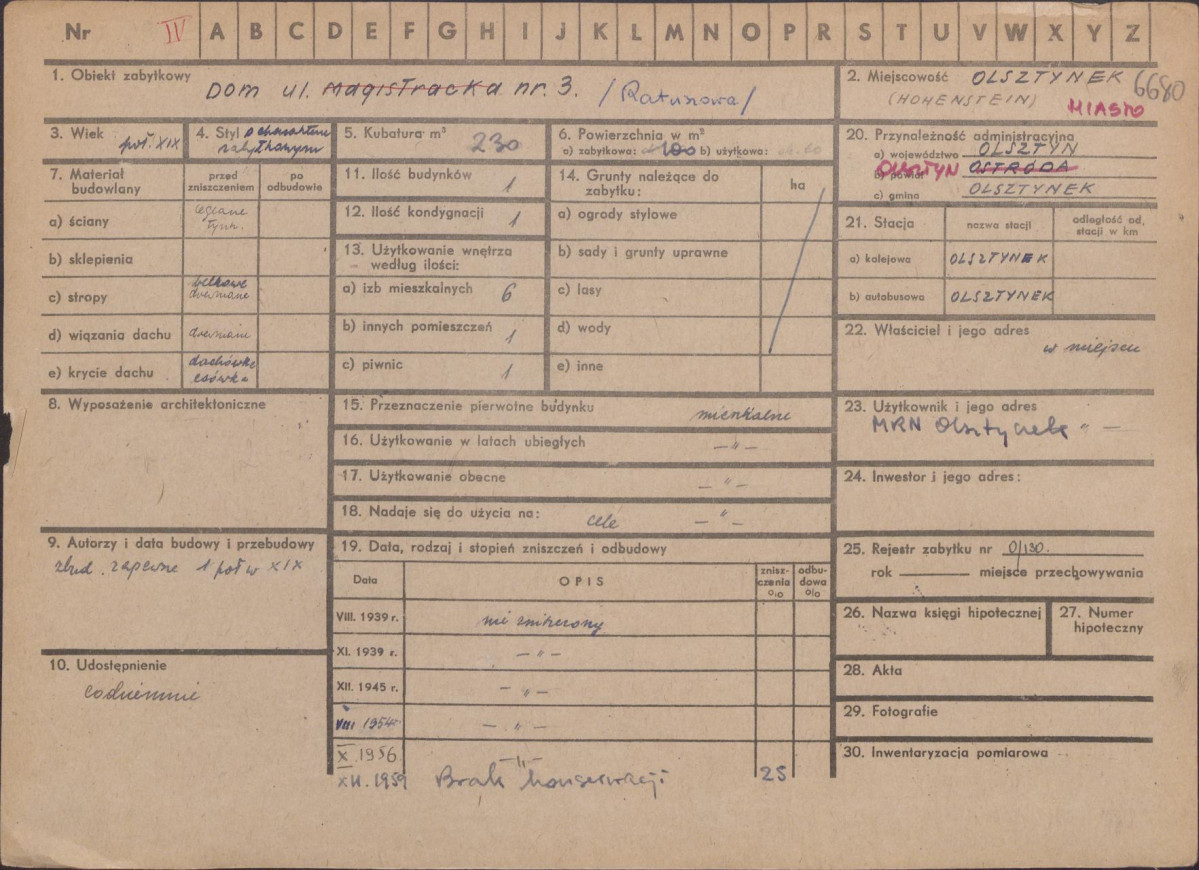 Nr IV A B C D E F G H I J K L M N O P R S T U V W X Y Z
1. Obiekt zabytkowy
Dom ul. Magistracka nr. 3. /Ratuszowa/
2. Miejscowość OLSZTYNEK 6680
(HOHENSTEIN) MIASTO
3. Wiek
poł. XIX
4. Styl o charakterze
zabytkowym
5. Kubatura m³
230
6. Powierzchnia w m²
a) zabytkowa: 100 b) użytkowa:
20. Przynależność administracyjna
a) województwo OLSZTYN
OLSZTYN b) powiat OSTRÓDA
c) gmina OLSZTYNEK
7. Materiał
budowlany
przed
zniszczeniem
po
odbudowie
a) ściany ceglane
tynk.
b) sklepienia
c) stropy belkowe
drewniane
d) wiązania dachu drewniane
e) krycie dachu dachówka
esówka
11. Ilość budynków 1
12. Ilość kondygnacji 1
13. Użytkowanie wnętrza
według ilości:
a) izb mieszkalnych 6
b) innych pomieszczeń 1
c) piwnic 1
14. Grunty należące do
zabytku:
ha
a) ogrody stylowe
b) sady i grunty uprawne
c) lasy
d) wody
e) inne
21. Stacja
nazwa stacji
odległość od
stacji w km
a) kolejowa OLSZTYNEK
b) autobusowa OLSZTYNEK
22. Właściciel i jego adres
w miejscu
8. Wyposażenie architektoniczne
15. Przeznaczenie pierwotne budynku mieszkalne
16. Użytkowanie w latach ubiegłych — " —
17. Użytkowanie obecne — " —
18. Nadaje się do użycia na: cele — " —
23. Użytkownik i jego adres
MRN Olsztynek " —
24. Inwestor i jego adres:
9. Autorzy i data budowy i przebudowy
zbud. zapewne 1 poł w XIX
10. Udostępnienie
codziennie
19. Data, rodzaj i stopień zniszczeń i odbudowy
Data
OPIS
znisz-
czenia
%
odbu-
dowa
%
VIII. 1939 r. nie zniszczony
XI. 1939 r. — " —
XII. 1945 r. — " —
VIII 1954 — " —
X. 1956 — " —
XII. 1959 Brak konserwacji 25
25. Rejestr zabytku nr 0/130.
rok miejsce przechowywania
26. Nazwa księgi hipotecznej
27. Numer
hipoteczny
28. Akta
29. Fotografie
30. Inwentaryzacja pomiarowa